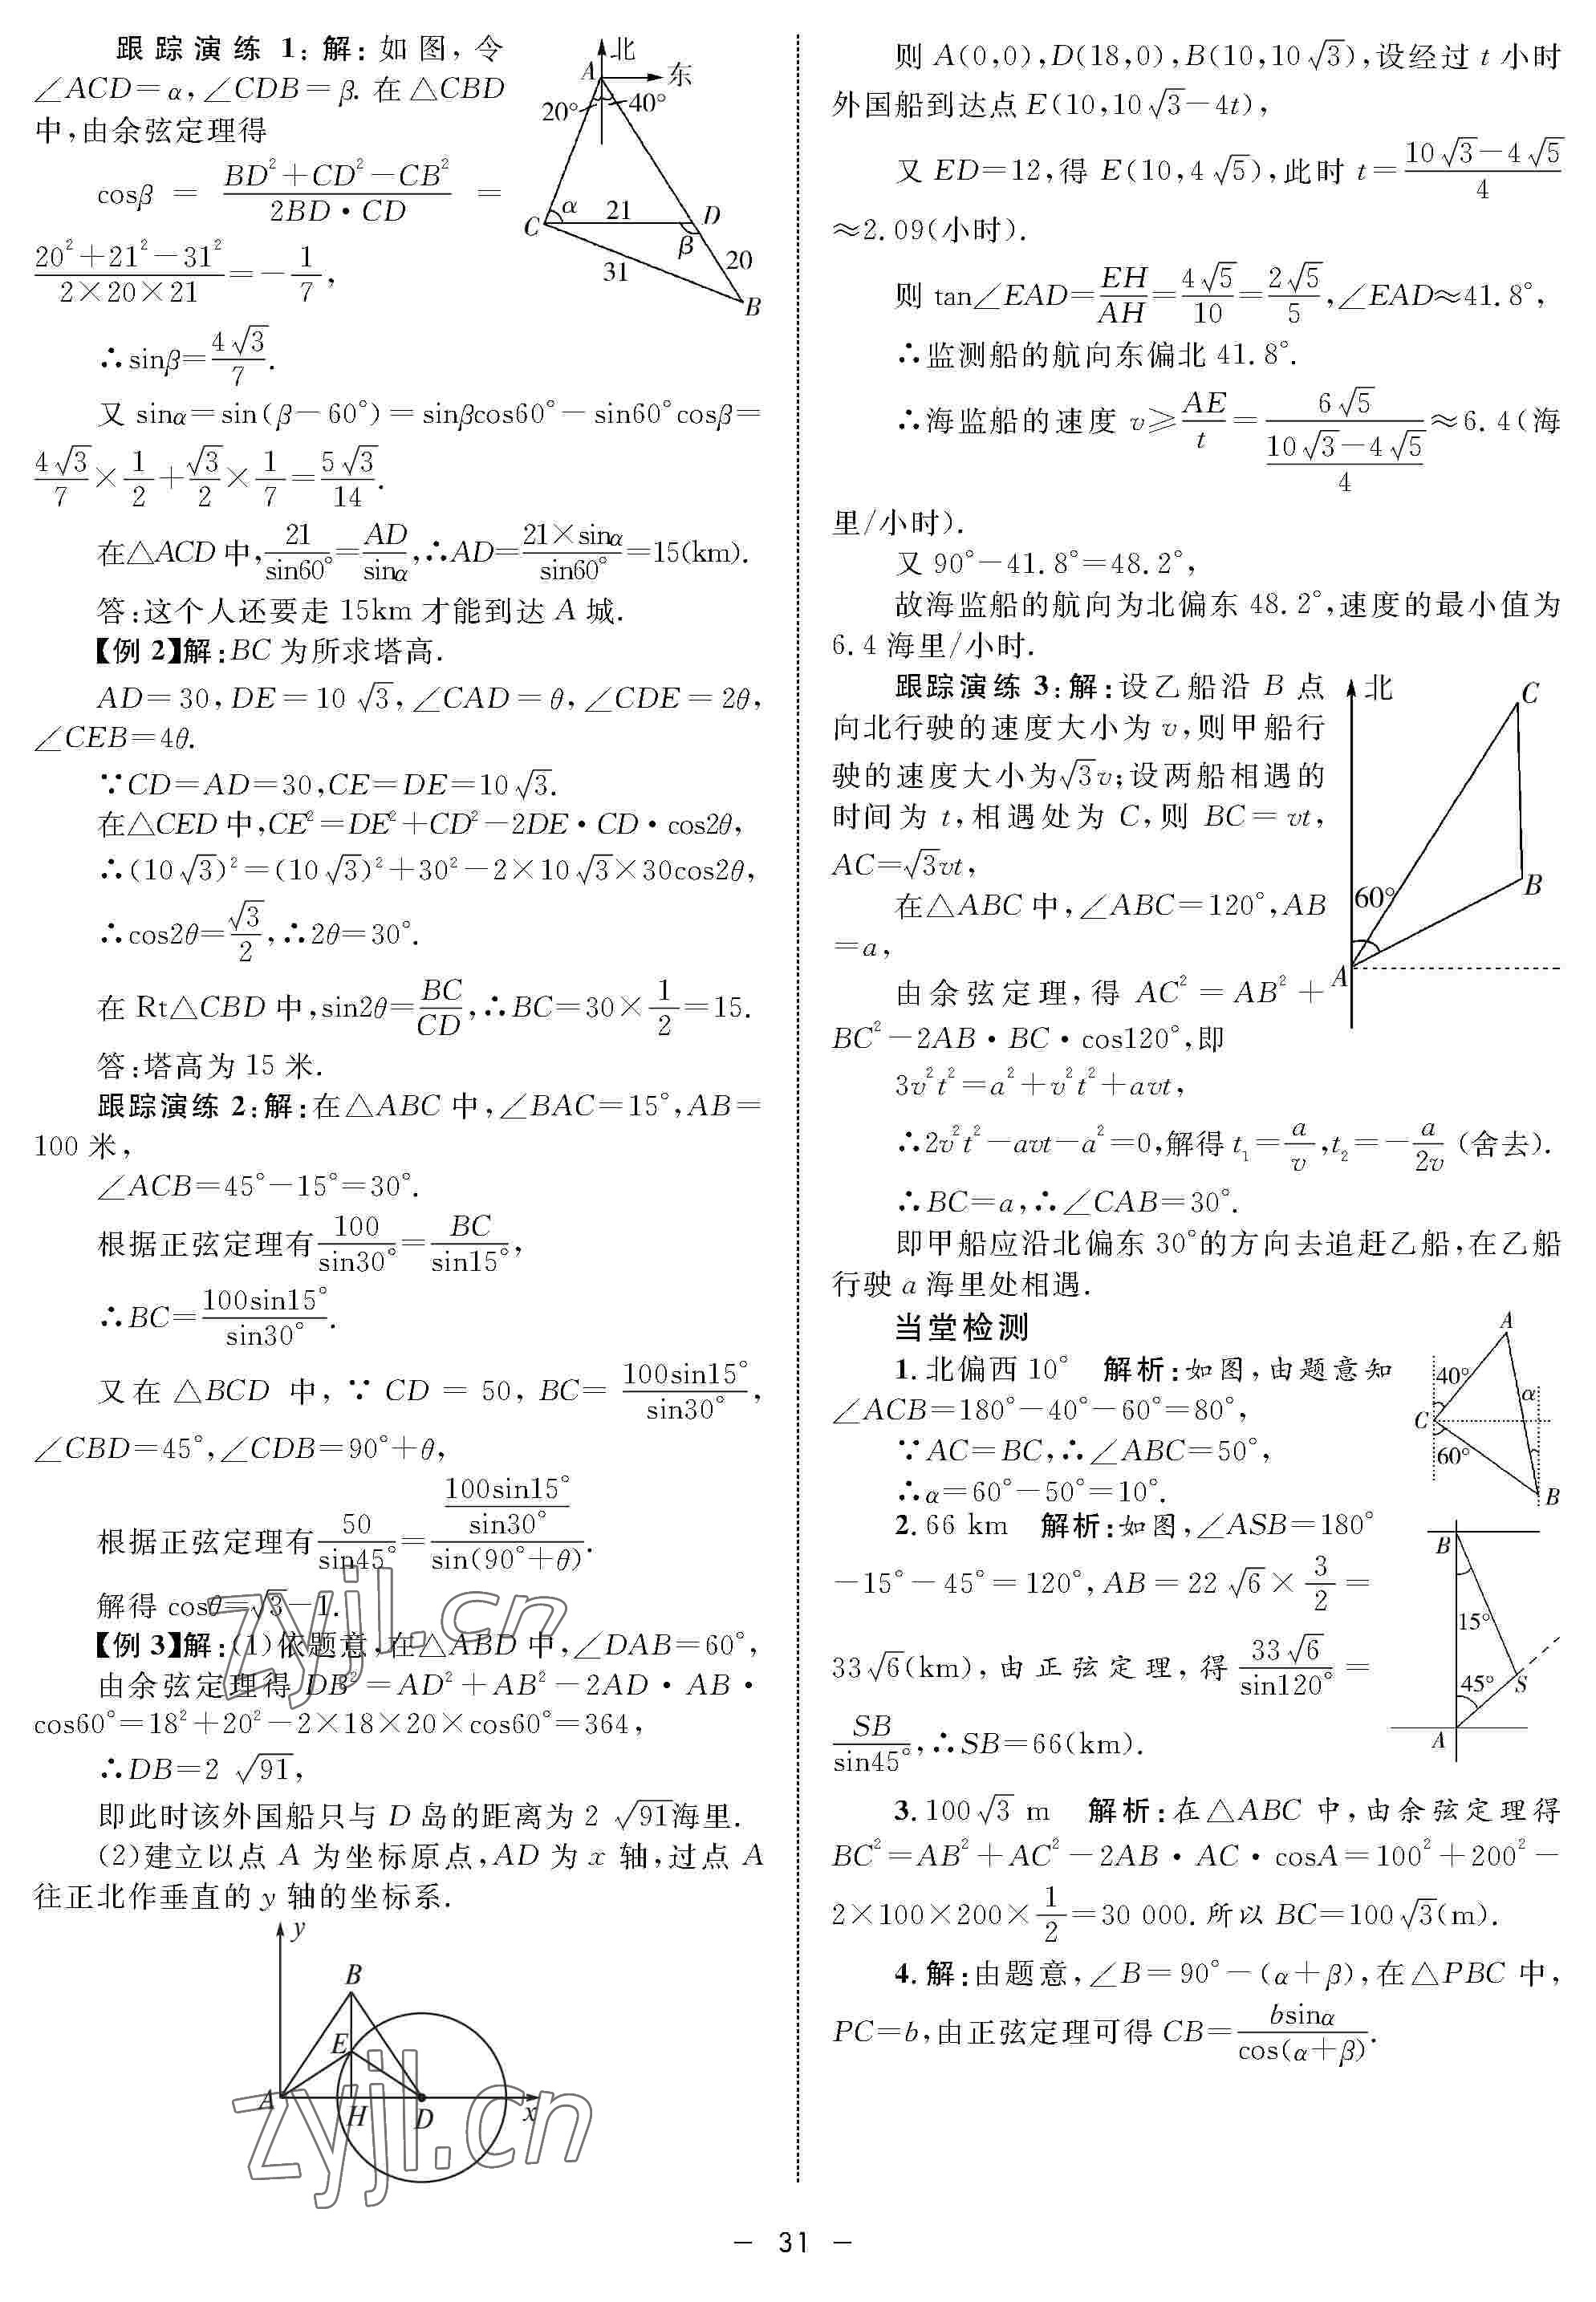 跟踪演练 1:解:如图,令
∠ACD=α,∠CDB=β.在△CBD
中,由余弦定理得
cosβ = \frac{BD²+CD²-CB²}{2BD·CD} =
\frac{20²+21²-31²}{2×20×21}=-\frac{1}{7},
∴sinβ=\frac{4√3}{7}.
又 sinα=sin(β-60°)=sinβcos60°-sin60°cosβ=
\frac{4√3}{7}×\frac{1}{2}+\frac{√3}{2}×\frac{1}{7}=\frac{5√3}{14}.
在△ACD中,\frac{21}{sin60°}=\frac{AD}{sinα},∴AD=\frac{21×sinα}{sin60°}=15(km).
答:这个人还要走 15km 才能到达 A 城.
北
A
东
20°
40°
C
α
21
D
β
31
20
B
【例 2】解:BC 为所求塔高.
AD=30,DE=10√3,∠CAD=θ,∠CDE=2θ,
∠CEB=4θ.
∵CD=AD=30,CE=DE=10√3.
在△CED中,CE²=DE²+CD²-2DE·CD·cos2θ,
∴(10√3)²=(10√3)²+30²-2×10√3×30cos2θ,
∴cos2θ=\frac{√3}{2},∴2θ=30°.
在 Rt△CBD 中,sin2θ=\frac{BC}{CD},∴BC=30×\frac{1}{2}=15.
答:塔高为 15 米.
跟踪演练 2:解:在△ABC 中,∠BAC=15°,AB=
100 米,
∠ACB=45°-15°=30°.
根据正弦定理有\frac{100}{sin30°}=\frac{BC}{sin15°},
∴BC=\frac{100sin15°}{sin30°}.
又在△BCD 中,∵CD=50,BC=\frac{100sin15°}{sin30°},
∠CBD=45°,∠CDB=90°+θ,
根据正弦定理有\frac{50}{sin45°}=\frac{\frac{100sin15°}{sin30°}}{sin(90°+θ)}.
解得 cosθ=√3-1.
【例 3】解:(1)依题意,在△ABD中,∠DAB=60°,
由余弦定理得 DB²=AD²+AB²-2AD·AB·
cos60°=18²+20²-2×18×20×cos60°=364,
∴DB=2√91,
即此时该外国船只与 D 岛的距离为 2√91海里.
(2)建立以点 A 为坐标原点,AD 为 x 轴,过点 A
往正北作垂直的 y 轴的坐标系.
y
B
E
A
H
D
x
zyjl.cn
zyjl.cn
则 A(0,0),D(18,0),B(10,10√3),设经过 t 小时
外国船到达点 E(10,10√3-4t),
又 ED=12,得 E(10,4√5),此时 t=\frac{10√3-4√5}{4}
≈2.09(小时).
则 tan∠EAD=\frac{EH}{AH}=\frac{4√5}{10}=\frac{2√5}{5},∠EAD≈41.8°,
∴监测船的航向东偏北 41.8°.
∴海监船的速度 v≥\frac{AE}{t}=\frac{6√5}{\frac{10√3-4√5}{4}}≈6.4(海
里/小时).
又 90°-41.8°=48.2°,
故海监船的航向为北偏东 48.2°,速度的最小值为
6.4 海里/小时.
跟踪演练 3:解:设乙船沿 B 点
向北行驶的速度大小为 v,则甲船行
驶的速度大小为√3v;设两船相遇的
时间为 t,相遇处为 C,则 BC=vt,
AC=√3vt,
在△ABC中,∠ABC=120°,AB
=a,
由余弦定理,得 AC²=AB²+
BC²-2AB·BC·cos120°,即
3v²t²=a²+v²t²+avt,
∴2v²t²-avt-a²=0,解得 t₁=\frac{a}{v},t₂=-\frac{a}{2v}(舍去).
∴BC=a,∴∠CAB=30°.
即甲船应沿北偏东 30°的方向去追赶乙船,在乙船
行驶 a 海里处相遇.
北
C
60°
B
A
当堂检测
1.北偏西 10° 解析:如图,由题意知
∠ACB=180°-40°-60°=80°,
∵AC=BC,∴∠ABC=50°,
∴α=60°-50°=10°.
A
40°
α
C
60°
B
2.66 km 解析:如图,∠ASB=180°
-15°-45°=120°,AB=22√6×\frac{3}{2}=
33√6(km),由正弦定理,得\frac{33√6}{sin120°}=
\frac{SB}{sin45°},∴SB=66(km).
B
15°
45°
S
A
3.100√3 m 解析:在△ABC 中,由余弦定理得
BC²=AB²+AC²-2AB·AC·cosA=100²+200²-
2×100×200×\frac{1}{2}=30 000.所以 BC=100√3(m).
4.解:由题意,∠B=90°-(α+β),在△PBC 中,
PC=b,由正弦定理可得 CB=\frac{bsinα}{cos(α+β)}.
- 31 -